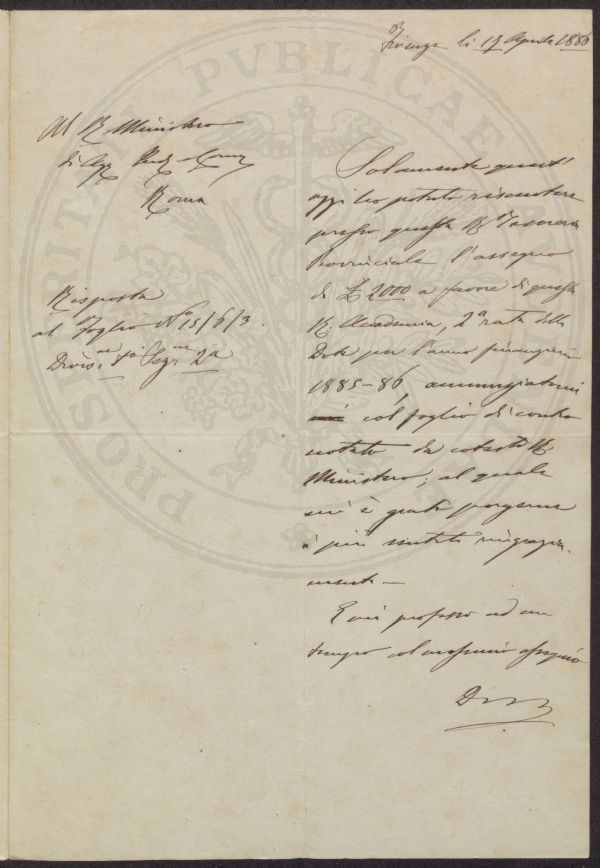 Firenze li 17 Aprile 1886
Al R. Ministero
di Agr. Ind. e Com.
Roma
Risposta
al Foglio No 15/6/3.
Divis.ne 1a Sez.ne 2a
Solamente quest'
oggi ho potuto riscuotere
presso questa R. Tesoreria
Provinciale l'assegno
di £ 2000 a favore di questa
R. Accademia, 2a rata della
Dote per l'anno finanziario
1885-86, annunziatami
col foglio di contro
notato da cotesto R.
Ministero; al quale
mi è grato porgerne
i più sentiti ringrazia-
menti —
E mi professo ad un
tempo col massimo ossequio
PROSPERITATI PVBLICAE